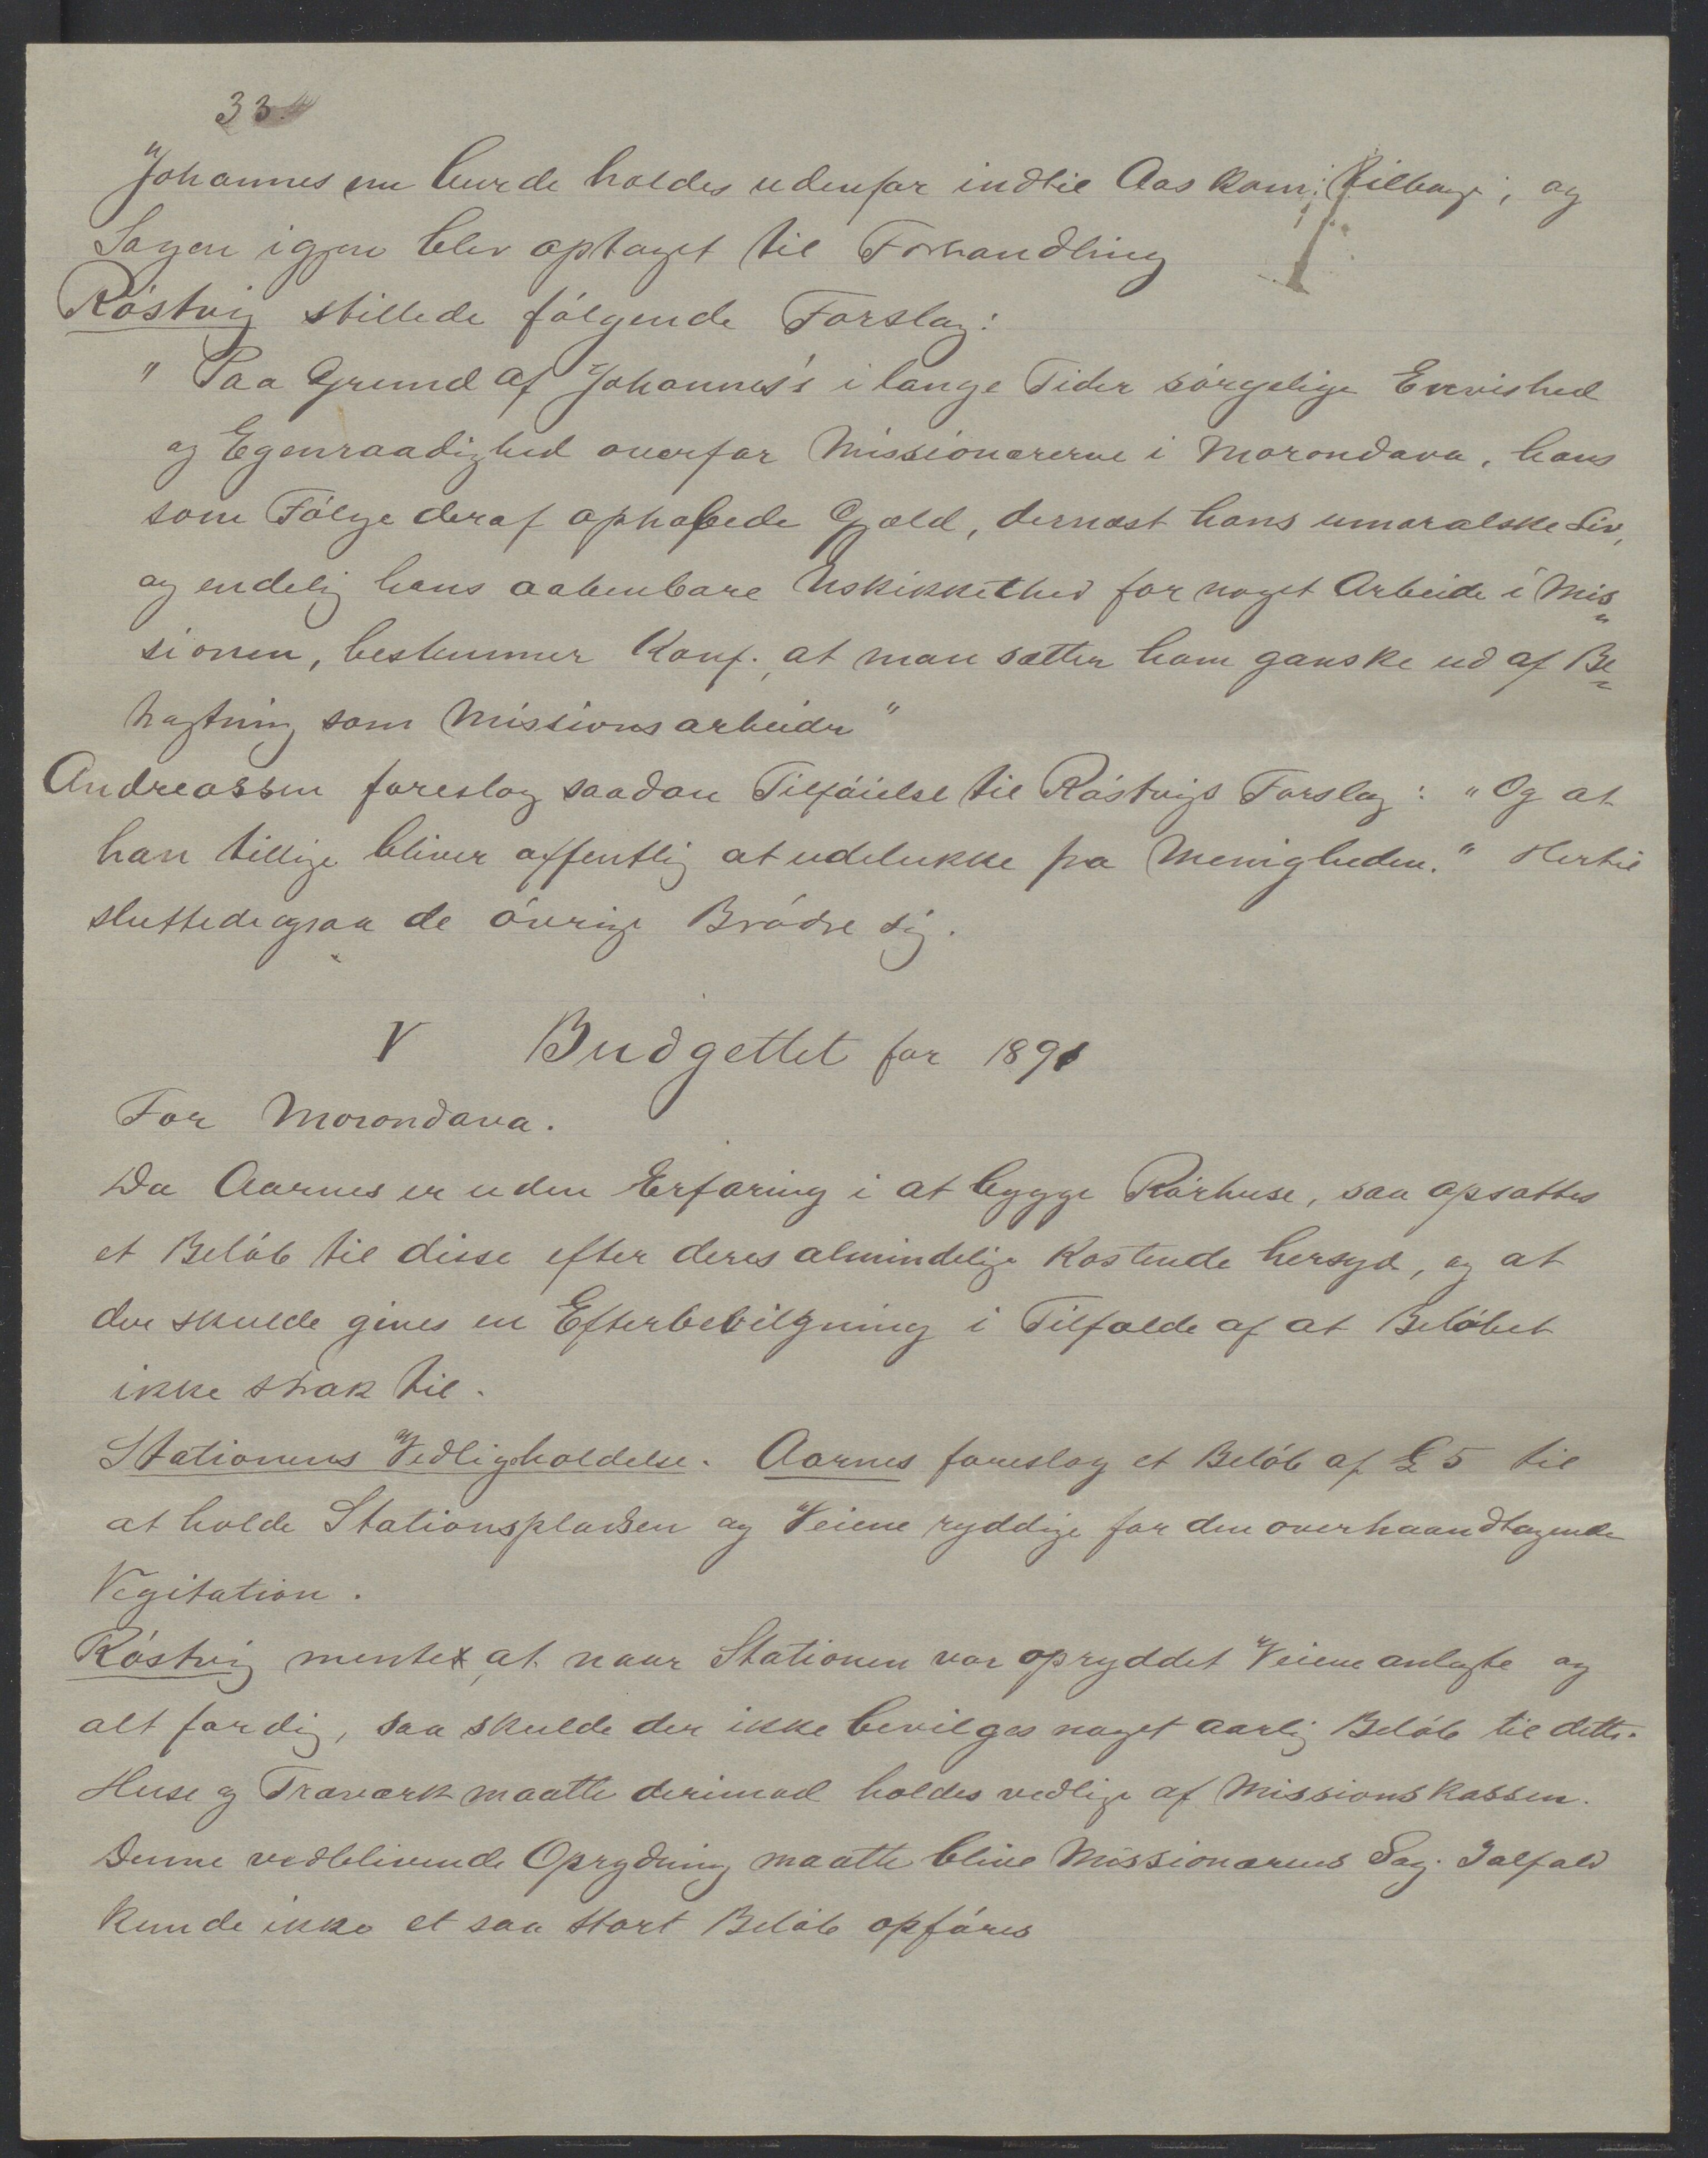 33.
Johannes nu burde holdes udenfor indtil Aas kom tilbage, og
Sagen igjen blev optaget til Forhandling
Röstvig stillede følgende Forslag:
"Paa Grund af Johannes's i lange Tider sörgelige Envished
og Egenraadighed overfor Missionærerne i Morondava, hans
som Fölge deraf ophobede Gjæld, dernæst hans umoralske Liv,
og endelig hans aabenbare Uskikkethed for noget Arbeide i Mis
sionen, bestemmer Konf., at man sætter ham ganske ud af Be
tragtning som Missionsarbeider"
Andreassen foreslog saadan Tilföielse til Röstvigs Forslag: "Og at
han tillige bliver offentlig at udelukke fra Menigheden." Hertil
sluttede ogsaa de övrige Brödre sig.
V Budgettet for 1891
For Morondava.
Da Aarnes er uden Erfaring i at bygge Rörhuse, saa opsattes
et Belöb til disse efter deres almindelige Kostende hersyd, og at
der skulde gives en Efterbevilgning i Tilfælde af at Belöbet
ikke strak til.
Stationens Vedligeholdelse. Aarnes foreslog et Belöb af £ 5 til
at holde Stationspladsen og Veiene ryddige for den overhaandtagende
Vegitation.
Röstvig mente, at naar Stationen var opryddet Veiene anlagte og
alt færdig, saa skulde der ikke bevilges noget aarlig Belöb til dette.
Huse og Træværk maatte derimod holdes vedlige af Missionskassen.
Denne vedblivende Oprydning maatte blive Missionærens Sag. Ialfald
kunde ikke et saa stort Belöb opföres